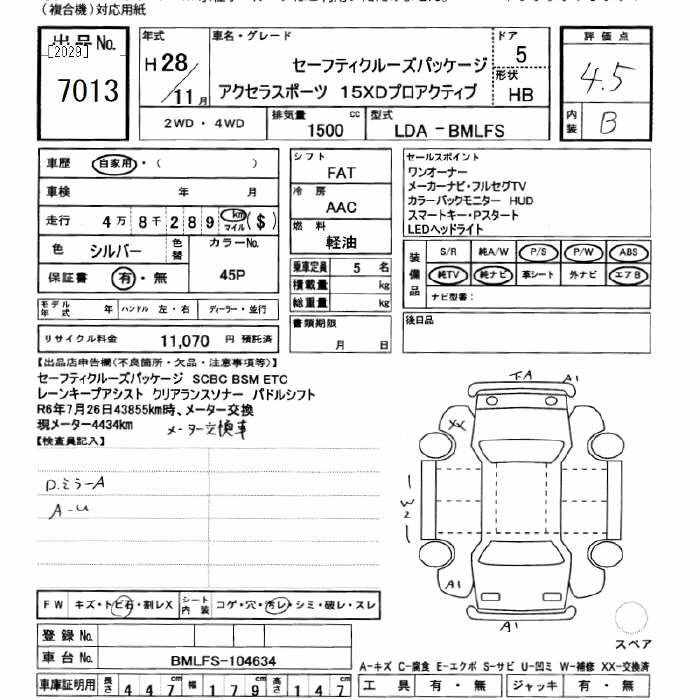 (複合機)対応用紙
出品No.
[2029]
7013
年式
H 28 / 11 月
車名・グレード
セーフティクルーズパッケージ
アクセラスポーツ 15XDプロアクティブ
ドア
5
形状
HB
評価点
4.5
内装
B
2WD・4WD
排気量
1500 cc
型式
LDA -BMLFS
車歴 自家用・( )
車検 年 月
走行 4万 8千 2 8 9 km マイル ($)
色 シルバー 色替
カラーNo.
45P
保証書 有・無
シフト
FAT
冷房
AAC
燃料
軽油
乗車定員 5 名
積載量 kg
総重量 kg
セールスポイント
ワンオーナー
メーカーナビ・フルセグTV
カラーバックモニター HUD
スマートキー・Pスタート
LEDヘッドライト
装備品
S/R 純A/W P/S P/W ABS
純TV 純ナビ 革シート 外ナビ エアB
ナビ型番:
モデル年式 年 ハンドル 左・右 ディーラー・並行
リサイクル料金 11,070 円 預託済
書類期限
月 日
後日品
【出品店申告欄(不良箇所・欠品・注意事項等)】
セーフティクルーズパッケージ SCBC BSM ETC
レーンキープアシスト クリアランスソナー パドルシフト
R6年7月26日43855km時、メーター交換
現メーター4434km メーター交換車
【検査員記入】
D.ミラーA
A-U
FA A1
XX
W2
A1
A1
スペア
FW キズ・トビ石・割レX
シート内装 コゲ・穴・汚レ・シミ・破レ・スレ
登録No.
車台No. BMLFS-104634
A-キズ C-腐食 E-エクボ S-サビ U-凹ミ W-補修 XX-交換済
車庫証明用 長さ 4 4 7 cm 幅 1 7 9 cm 高さ 1 4 7 cm
工具 有・無 ジャッキ 有・無